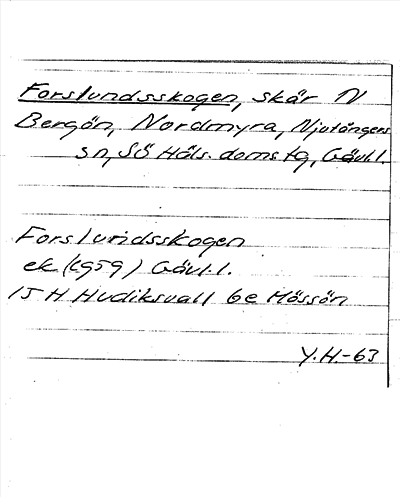 Forslundsskogen, skär N
Bergön, Nordmyra, Njutångers
sn, Sö Häls. doms tg, Gävl.l.
Forslundsskogen
ek (1959) Gävl.l.
15 H Hudiksvall 6e Mössön
Y.H.-63